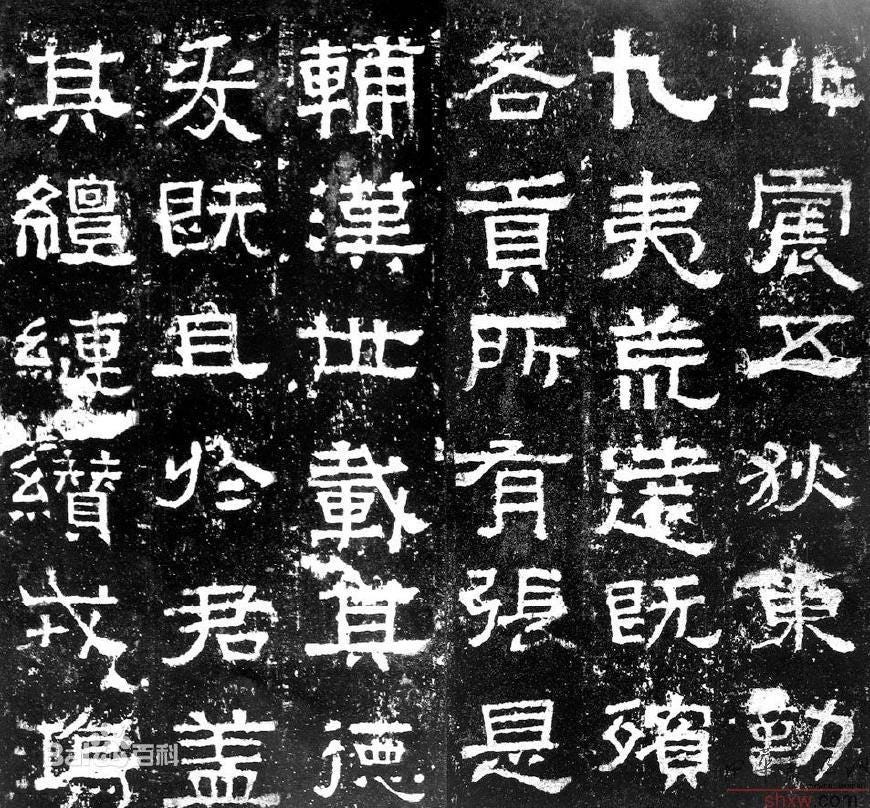 北震五狄東勤
九夷荒遠既殯
各貢所有張是
輔漢世載其德
爰既且於君盖
其繵縺纘戎鴻
Bai百科
shxw.com